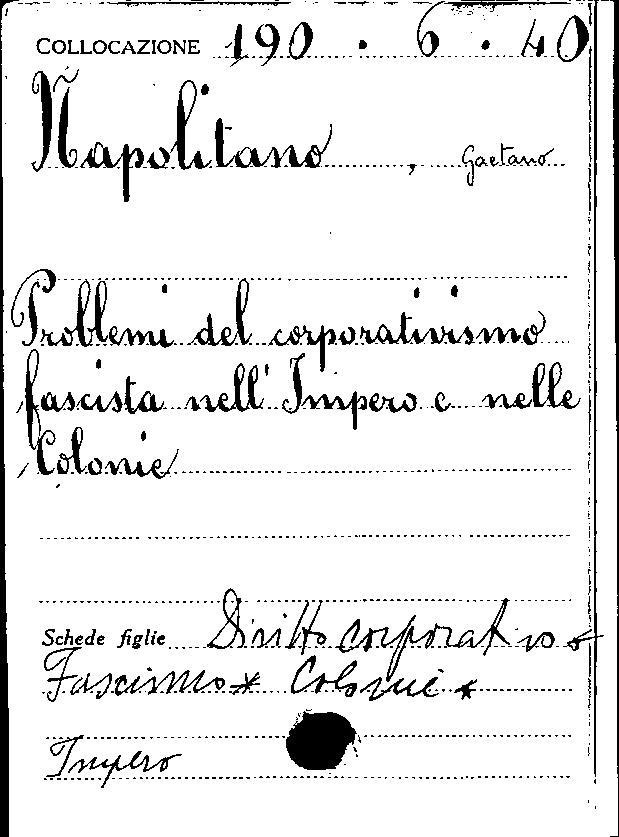 COLLOCAZIONE 190 . 6 . 40
Napolitano , Gaetano
Problemi del corporativismo
fascista nell' Impero e nelle
Colonie
Schede figlie Diritto corporativo *
Fascismo * Colonie *
Impero